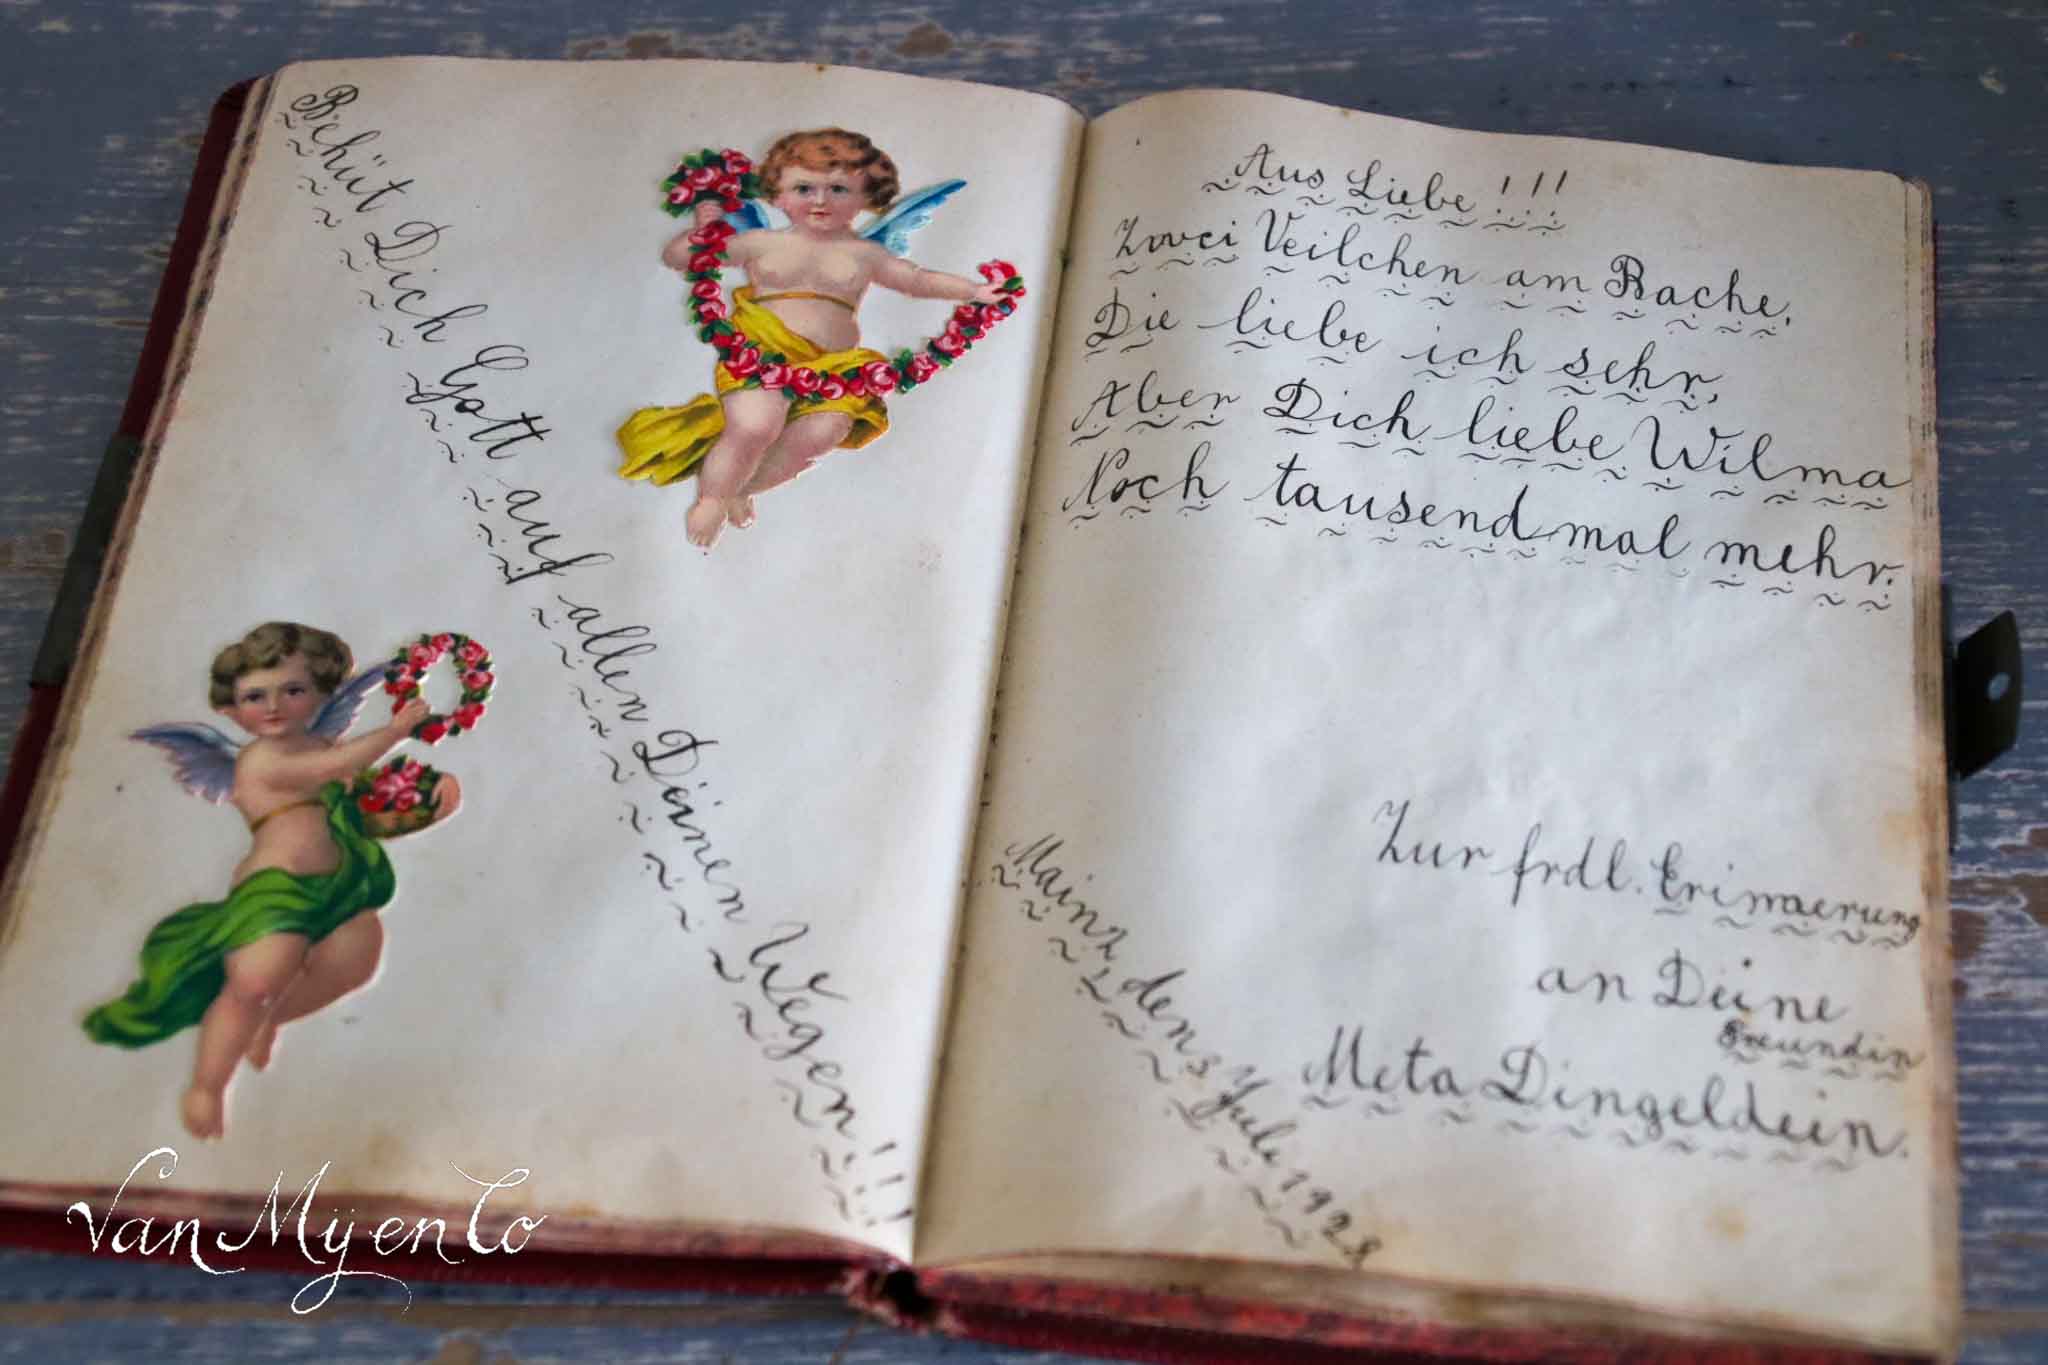 Behüt Dich Gott auf allen Deinen Wegen!!!
Aus Liebe!!!
Zwei Veilchen am Bache,
Die liebe ich sehr,
Aber Dich liebe Wilma
Noch tausendmal mehr.
Zur frdl. Erinnerung
an Deine
Freundin
Meta Dingeldein.
Mainz, den 3 Juli 1928
Van Mÿen Co